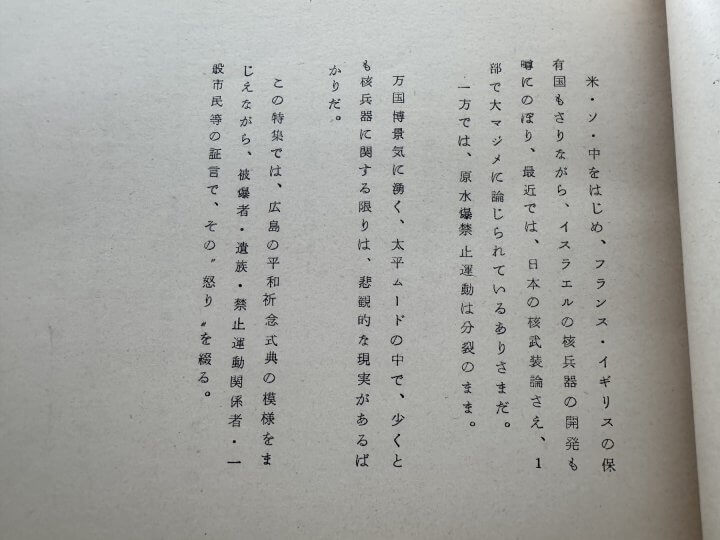 米・ソ・中をはじめ、フランス・イギリスの保
有国もさりながら、イスラエルの核兵器の開発も
噂にのぼり、最近では、日本の核武装論さえ、1
部で大マジメに論じられているありさまだ。
一方では、原水爆禁止運動は分裂のまま。
万国博景気に湧く、太平ムードの中で、少くと
も核兵器に関する限りは、悲観的な現実があるば
かりだ。
この特集では、広島の平和祈念式典の模様をま
じえながら、被爆者・遺族・禁止運動関係者・一
般市民等の証言で、その〝怒り〟を綴る。